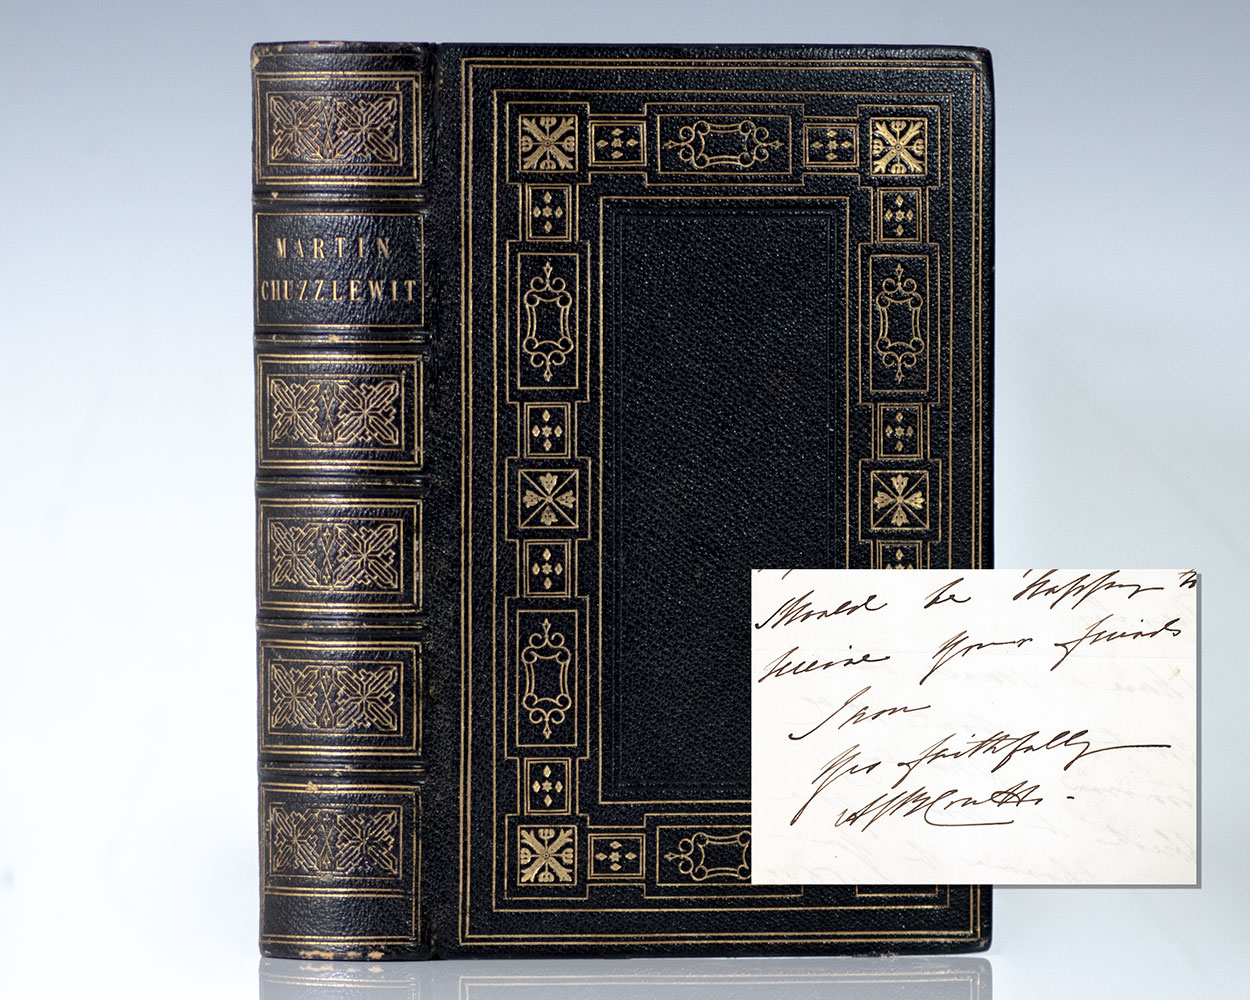 MARTIN
CHUZZLEWIT
should be happy to
receive your friends
I am
Yrs faithfully
ABCoutts.